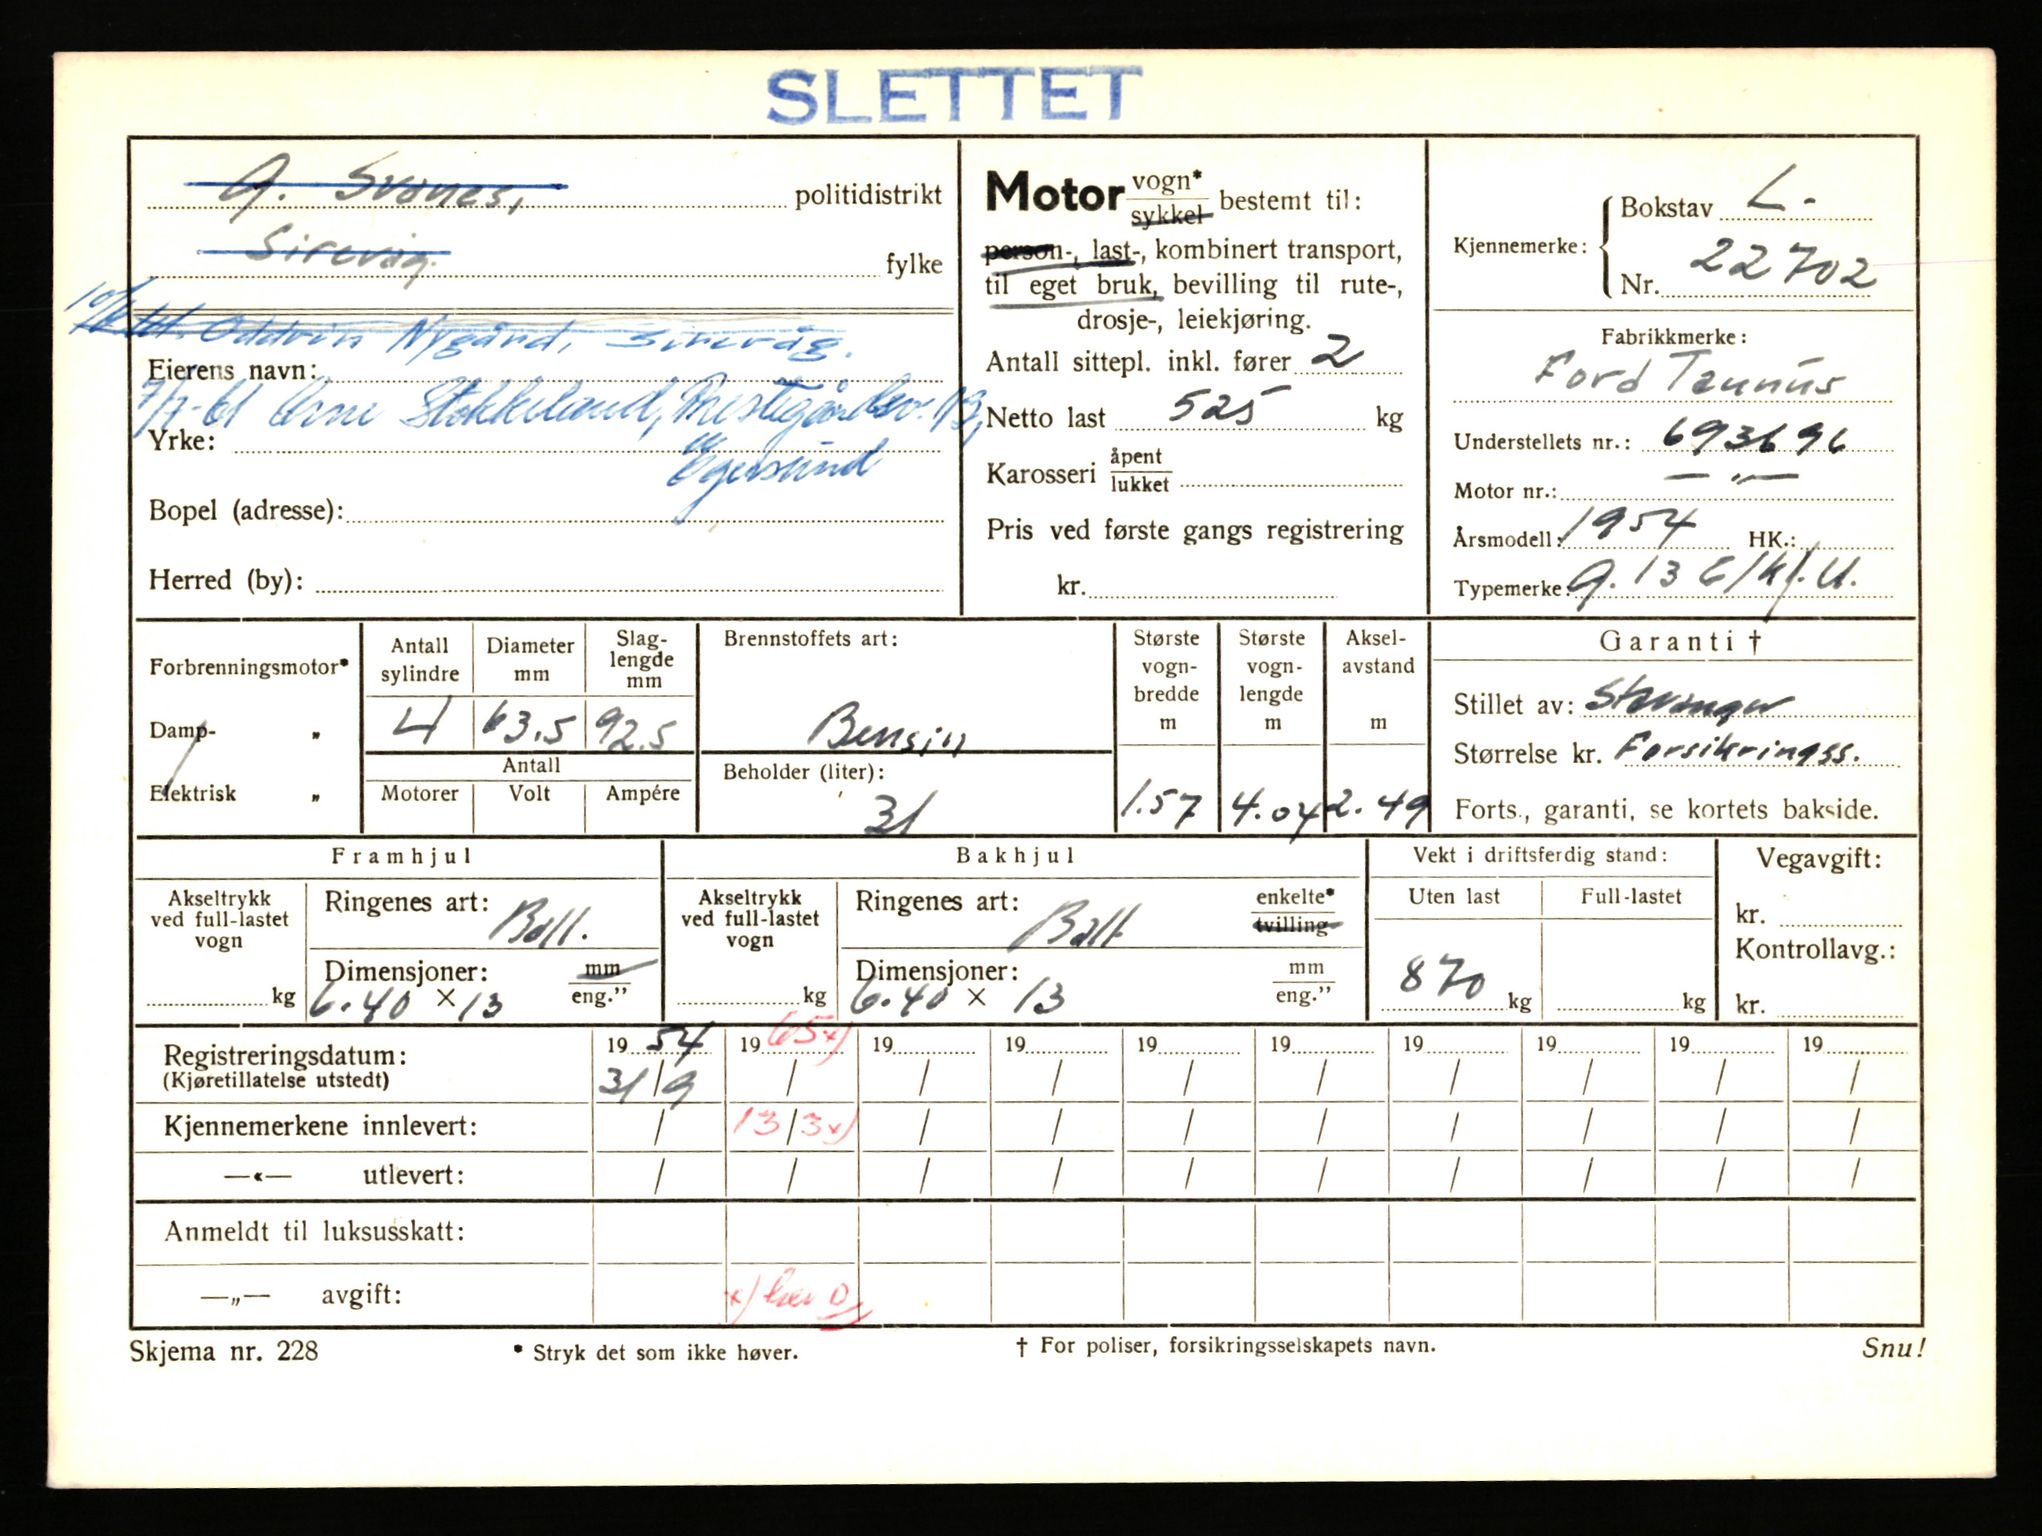 SLETTET
politidistrikt
Sirevåg. fylke
Oddvin Nygård, Sirevåg.
Eierens navn:
7/7-61 Arne Stokkeland, Prestegårdsv. 13,
Yrke:
Egersund
Bopel (adresse):
Herred (by):
Motor vogn* sykkel bestemt til:
person-, last-, kombinert transport,
til eget bruk, bevilling til rute-,
drosje-, leiekjøring.
Antall sittepl. inkl. fører 2
Netto last 525 kg
Karosseri åpent lukket
Pris ved første gangs registrering
kr.
Bokstav L.
Kjennemerke:
Nr. 22702
Fabrikkmerke:
Ford Taunus
Understellets nr.: 693696
Motor nr.: — „ —
Årsmodell: 1954 HK.:
Typemerke: G. 13
Forbrenningsmotor*
Damp- „
Elektrisk „
Antall sylindre Diameter mm Slag-lengde mm
4 63.5 92.5
Antall
Motorer Volt Ampére
Brennstoffets art:
Bensin
Beholder (liter):
31
Største vogn-bredde m Største vogn-lengde m Aksel-avstand m
1.57 4.04 2.49
Garanti †
Stillet av: Stavanger
Størrelse kr. Forsikringss.
Forts., garanti, se kortets bakside.
Framhjul
Akseltrykk ved full-lastet vogn
kg
Ringenes art: Ball.
Dimensjoner: mm eng."
6.40 × 13
Bakhjul
Akseltrykk ved full-lastet vogn
kg
Ringenes art: Ball enkelte* tvilling
Dimensjoner: mm eng."
6.40 × 13
Vekt i driftsferdig stand:
Uten last Full-lastet
870 kg kg
Vegavgift:
kr.
Kontrollavg.:
kr.
Registreringsdatum: 19 54 19 65 x) 19 19 19 19 19 19 19 19
(Kjøretillatelse utstedt) 31/9 / / / / / / / / /
Kjennemerkene innlevert: / 13/3 x) / / / / / / / /
—«— utlevert: / / / / / / / / / /
Anmeldt til luksusskatt:
—„— avgift: x)
Skjema nr. 228 * Stryk det som ikke høver. † For poliser, forsikringsselskapets navn. Snu!